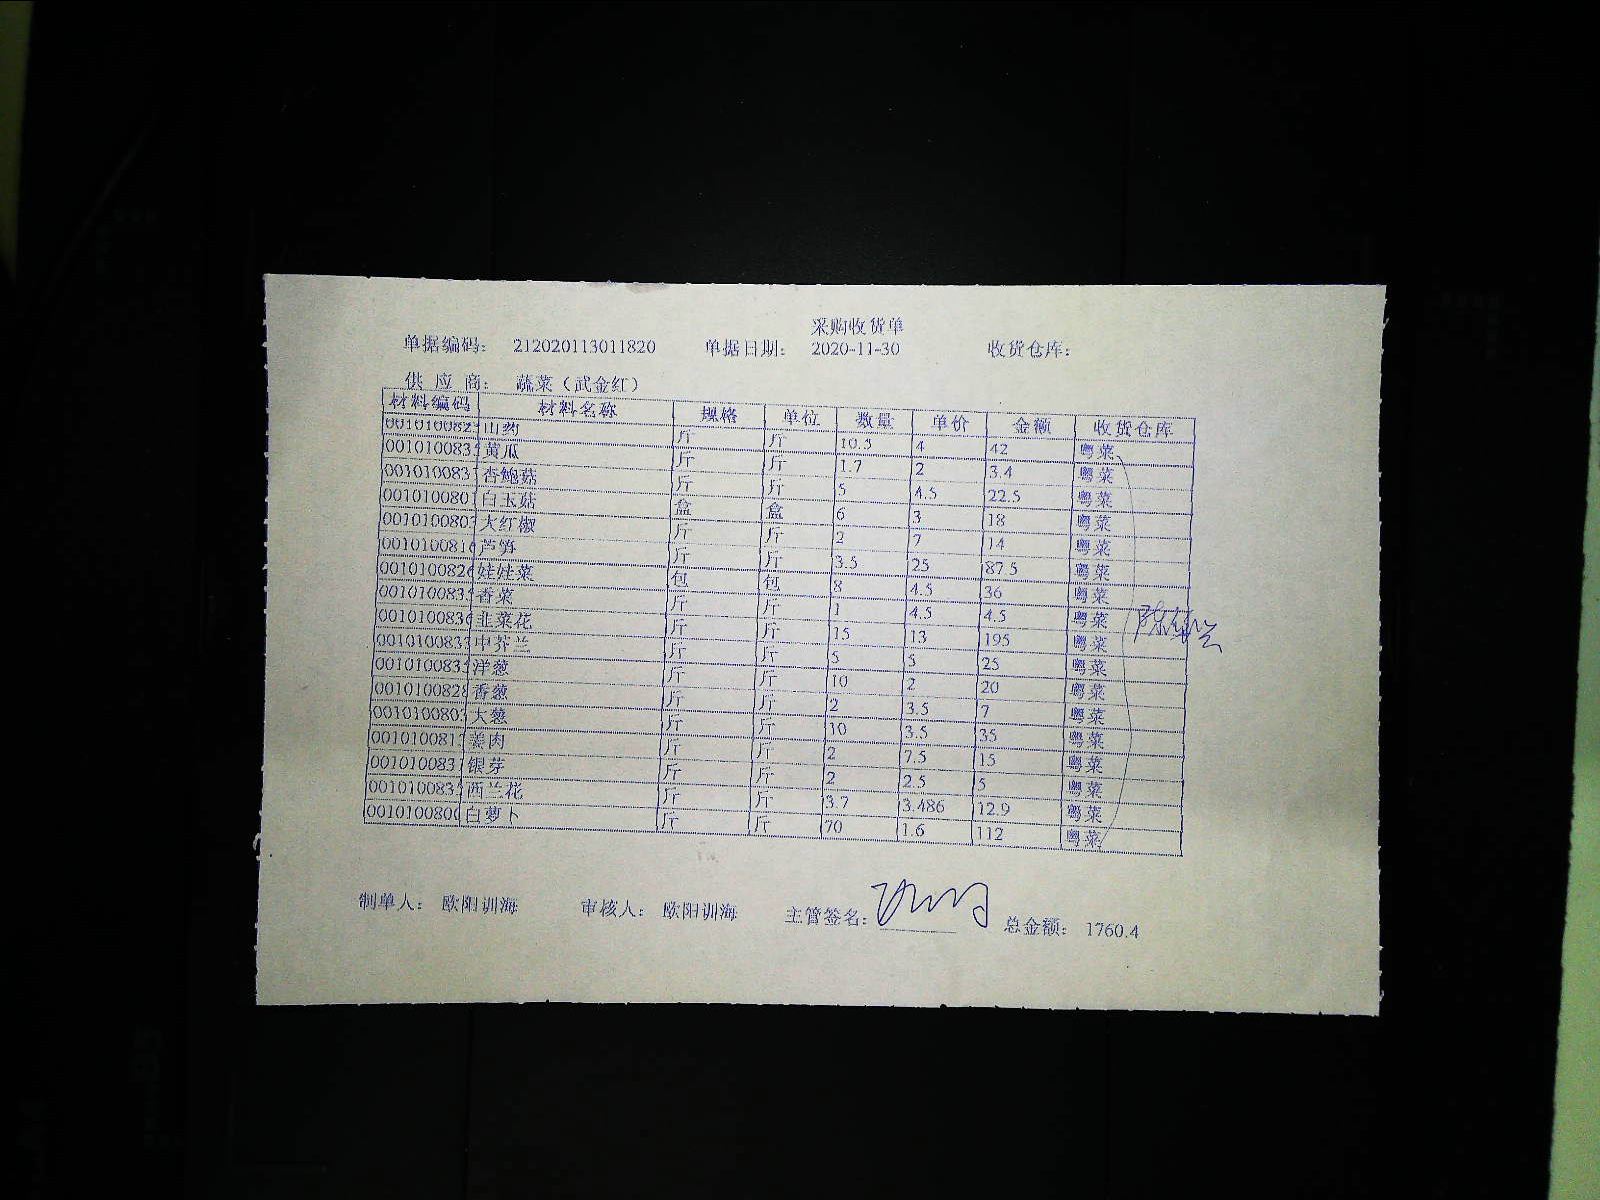 采购收货单
单据编码： 212020113011820 单据日期： 2020-11-30 收货仓库：
供 应 商： 蔬菜（武金红）
材料编码 材料名称 规格 单位 数量 单价 金额 收货仓库
001010082 山药 斤 斤 10.5 4 42 粤菜
001010083 黄瓜 斤 斤 1.7 2 3.4 粤菜
001010083 杏鲍菇 斤 斤 5 4.5 22.5 粤菜
001010080 白玉菇 盒 盒 6 3 18 粤菜
001010080 大红椒 斤 斤 2 7 14 粤菜
001010081 芦笋 斤 斤 3.5 25 87.5 粤菜
001010082 娃娃菜 包 包 8 4.5 36 粤菜
001010083 香菜 斤 斤 1 4.5 4.5 粤菜
001010083 韭菜花 斤 斤 15 13 195 粤菜
001010083 中芥兰 斤 斤 5 5 25 粤菜
001010083 洋葱 斤 斤 10 2 20 粤菜
001010082 香葱 斤 斤 2 3.5 7 粤菜
001010080 大葱 斤 斤 10 3.5 35 粤菜
001010081 姜肉 斤 斤 2 7.5 15 粤菜
001010083 银芽 斤 斤 2 2.5 5 粤菜
001010083 西兰花 斤 斤 3.7 3.486 12.9 粤菜
001010080 白萝卜 斤 斤 70 1.6 112 粤菜
制单人： 欧阳训海 审核人： 欧阳训海 主管签名： 总金额： 1760.4